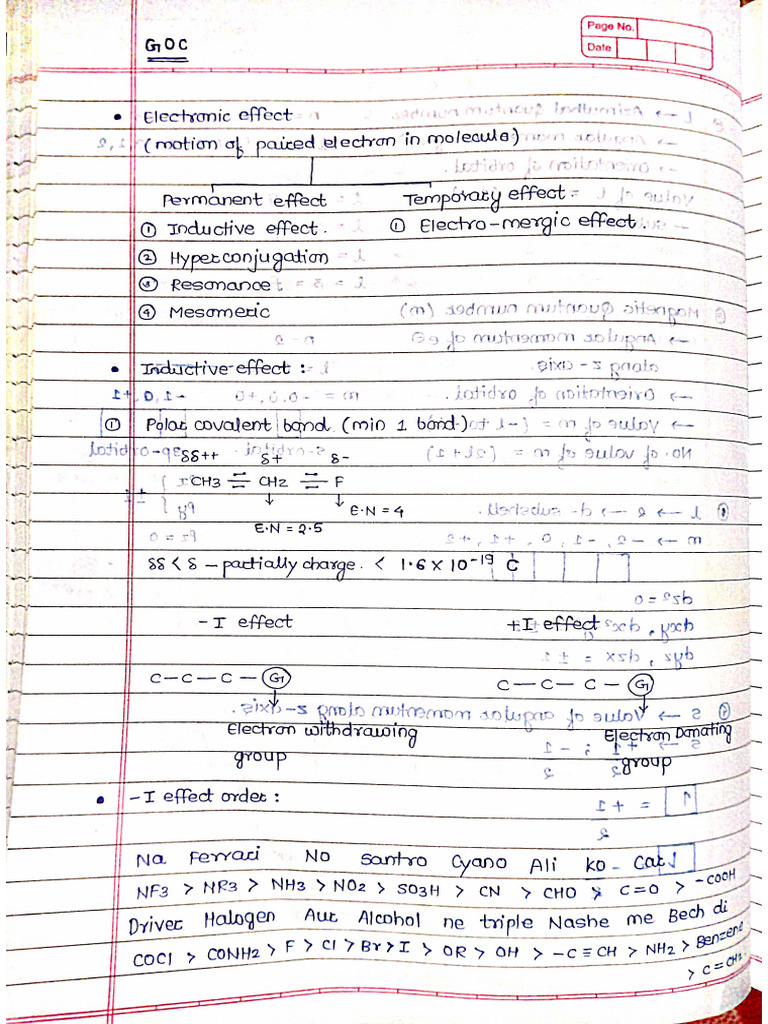 GOC
Page No.
Date
• Electronic effect
(motion of paired electron in molecule)
Permanent effect Temporary effect
① Inductive effect. ① Electro-mergic effect.
② Hyperconjugation
③ Resonance
④ Mesomeric
• Inductive-effect :-
① Polar covalent bond (min 1 bond.)
δδ++ δ+ δ-
CH3 = CH2 = F
E.N = 4
E.N = 2.5
δδ < δ - partially charge. < 1.6 × 10⁻¹⁹ C
- I effect +I effect
C - C - C - G C - C - C - G
Electron withdrawing Electron Donating
group group
• - I effect order :
Na Ferrari No Santro Cyano Ali ko Car
NF3 > NR3 > NH3 > NO2 > SO3H > CN > CHO > C=O > -COOH
Driver Halogen Aur Alcohol ne triple Nashe me Bech di
COCl > CONH2 > F > Cl > Br > I > OR > OH > -C≡CH > NH2 > Benzene
> C=CH2